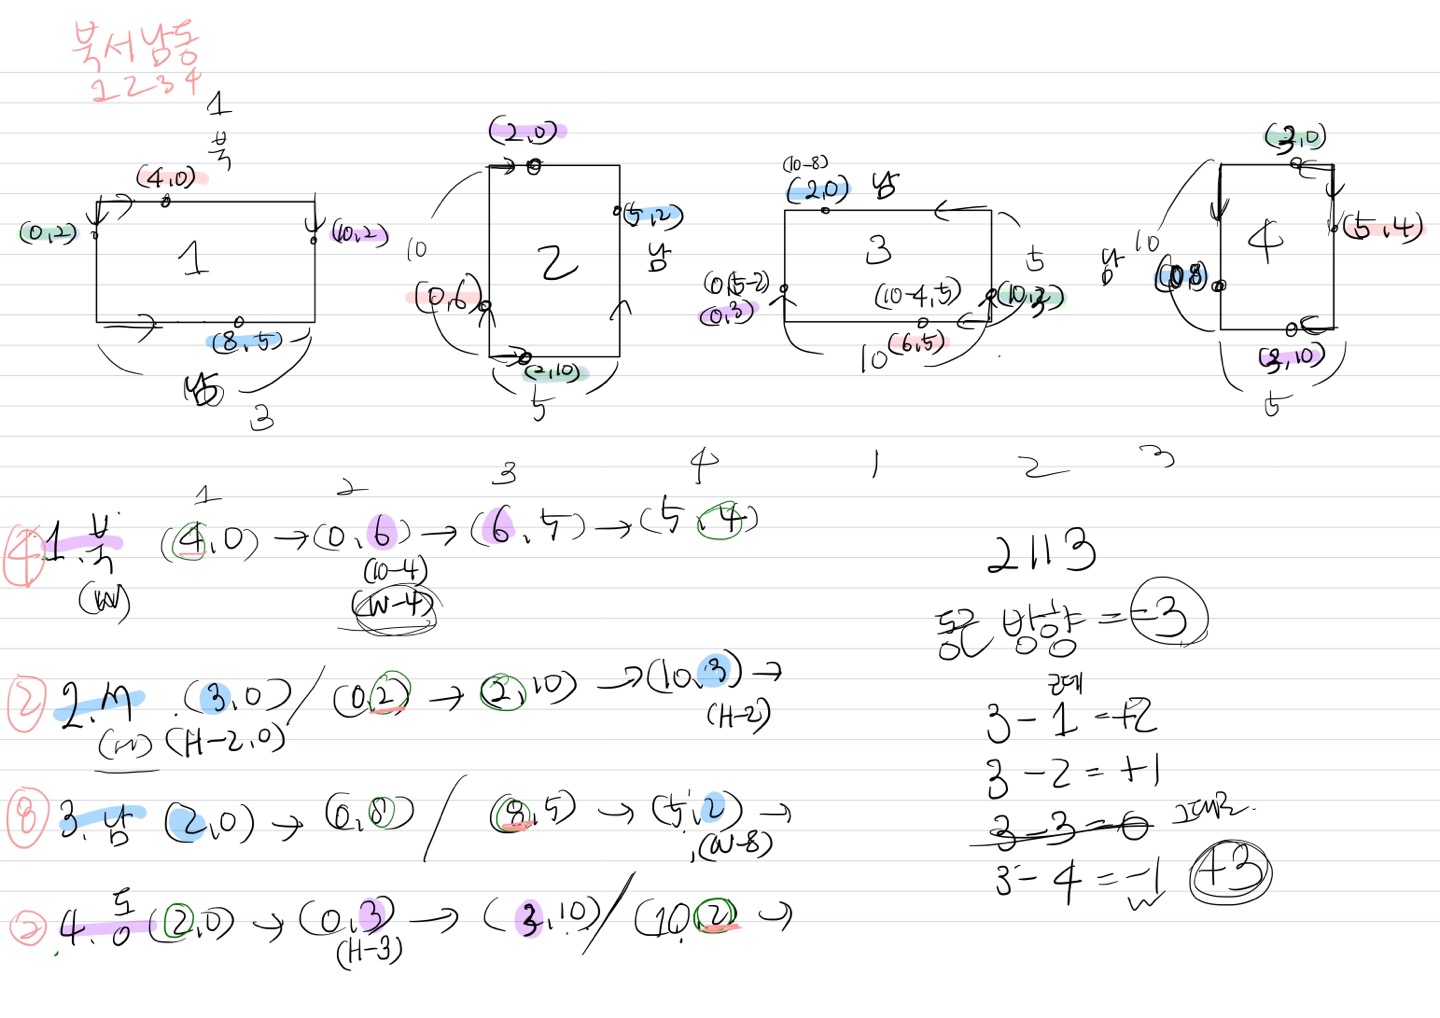 북서남동
1 2 3 4
1
북
(4,0)
(0,2)
1
(10,2)
(8,5)
3
(2,0)
10
2
(5,2)
남
(0,6)
(2,10)
5
(10-8)
(2,0) 남
3
5
(0,5-2)
(0,3)
(10-4,5)
(6,5)
10
(3,0)
10
남
4
(5,4)
(3,10)
5
1 2 3 4 1 2 3
④ 1. 북 (4,0) → (0,6) → (6,5) → (5,4)
(W) (10-4)
(W-4)
② 2. 서 (3,0) / (0,2) → (2,10) → (10,3) →
(H-2,0) (H-2)
⑧ 3. 남 (2,0) → (0,8) / (8,5) → (5,2) →
(W-8)
② 4. 동 (2,0) → (0,3) → (3,10) / (10,2) →
(H-3)
2113
방향 = -3
3 - 1 = +2
3 - 2 = +1
3 - 3 = 0 그대로
3 - 4 = -1 +3